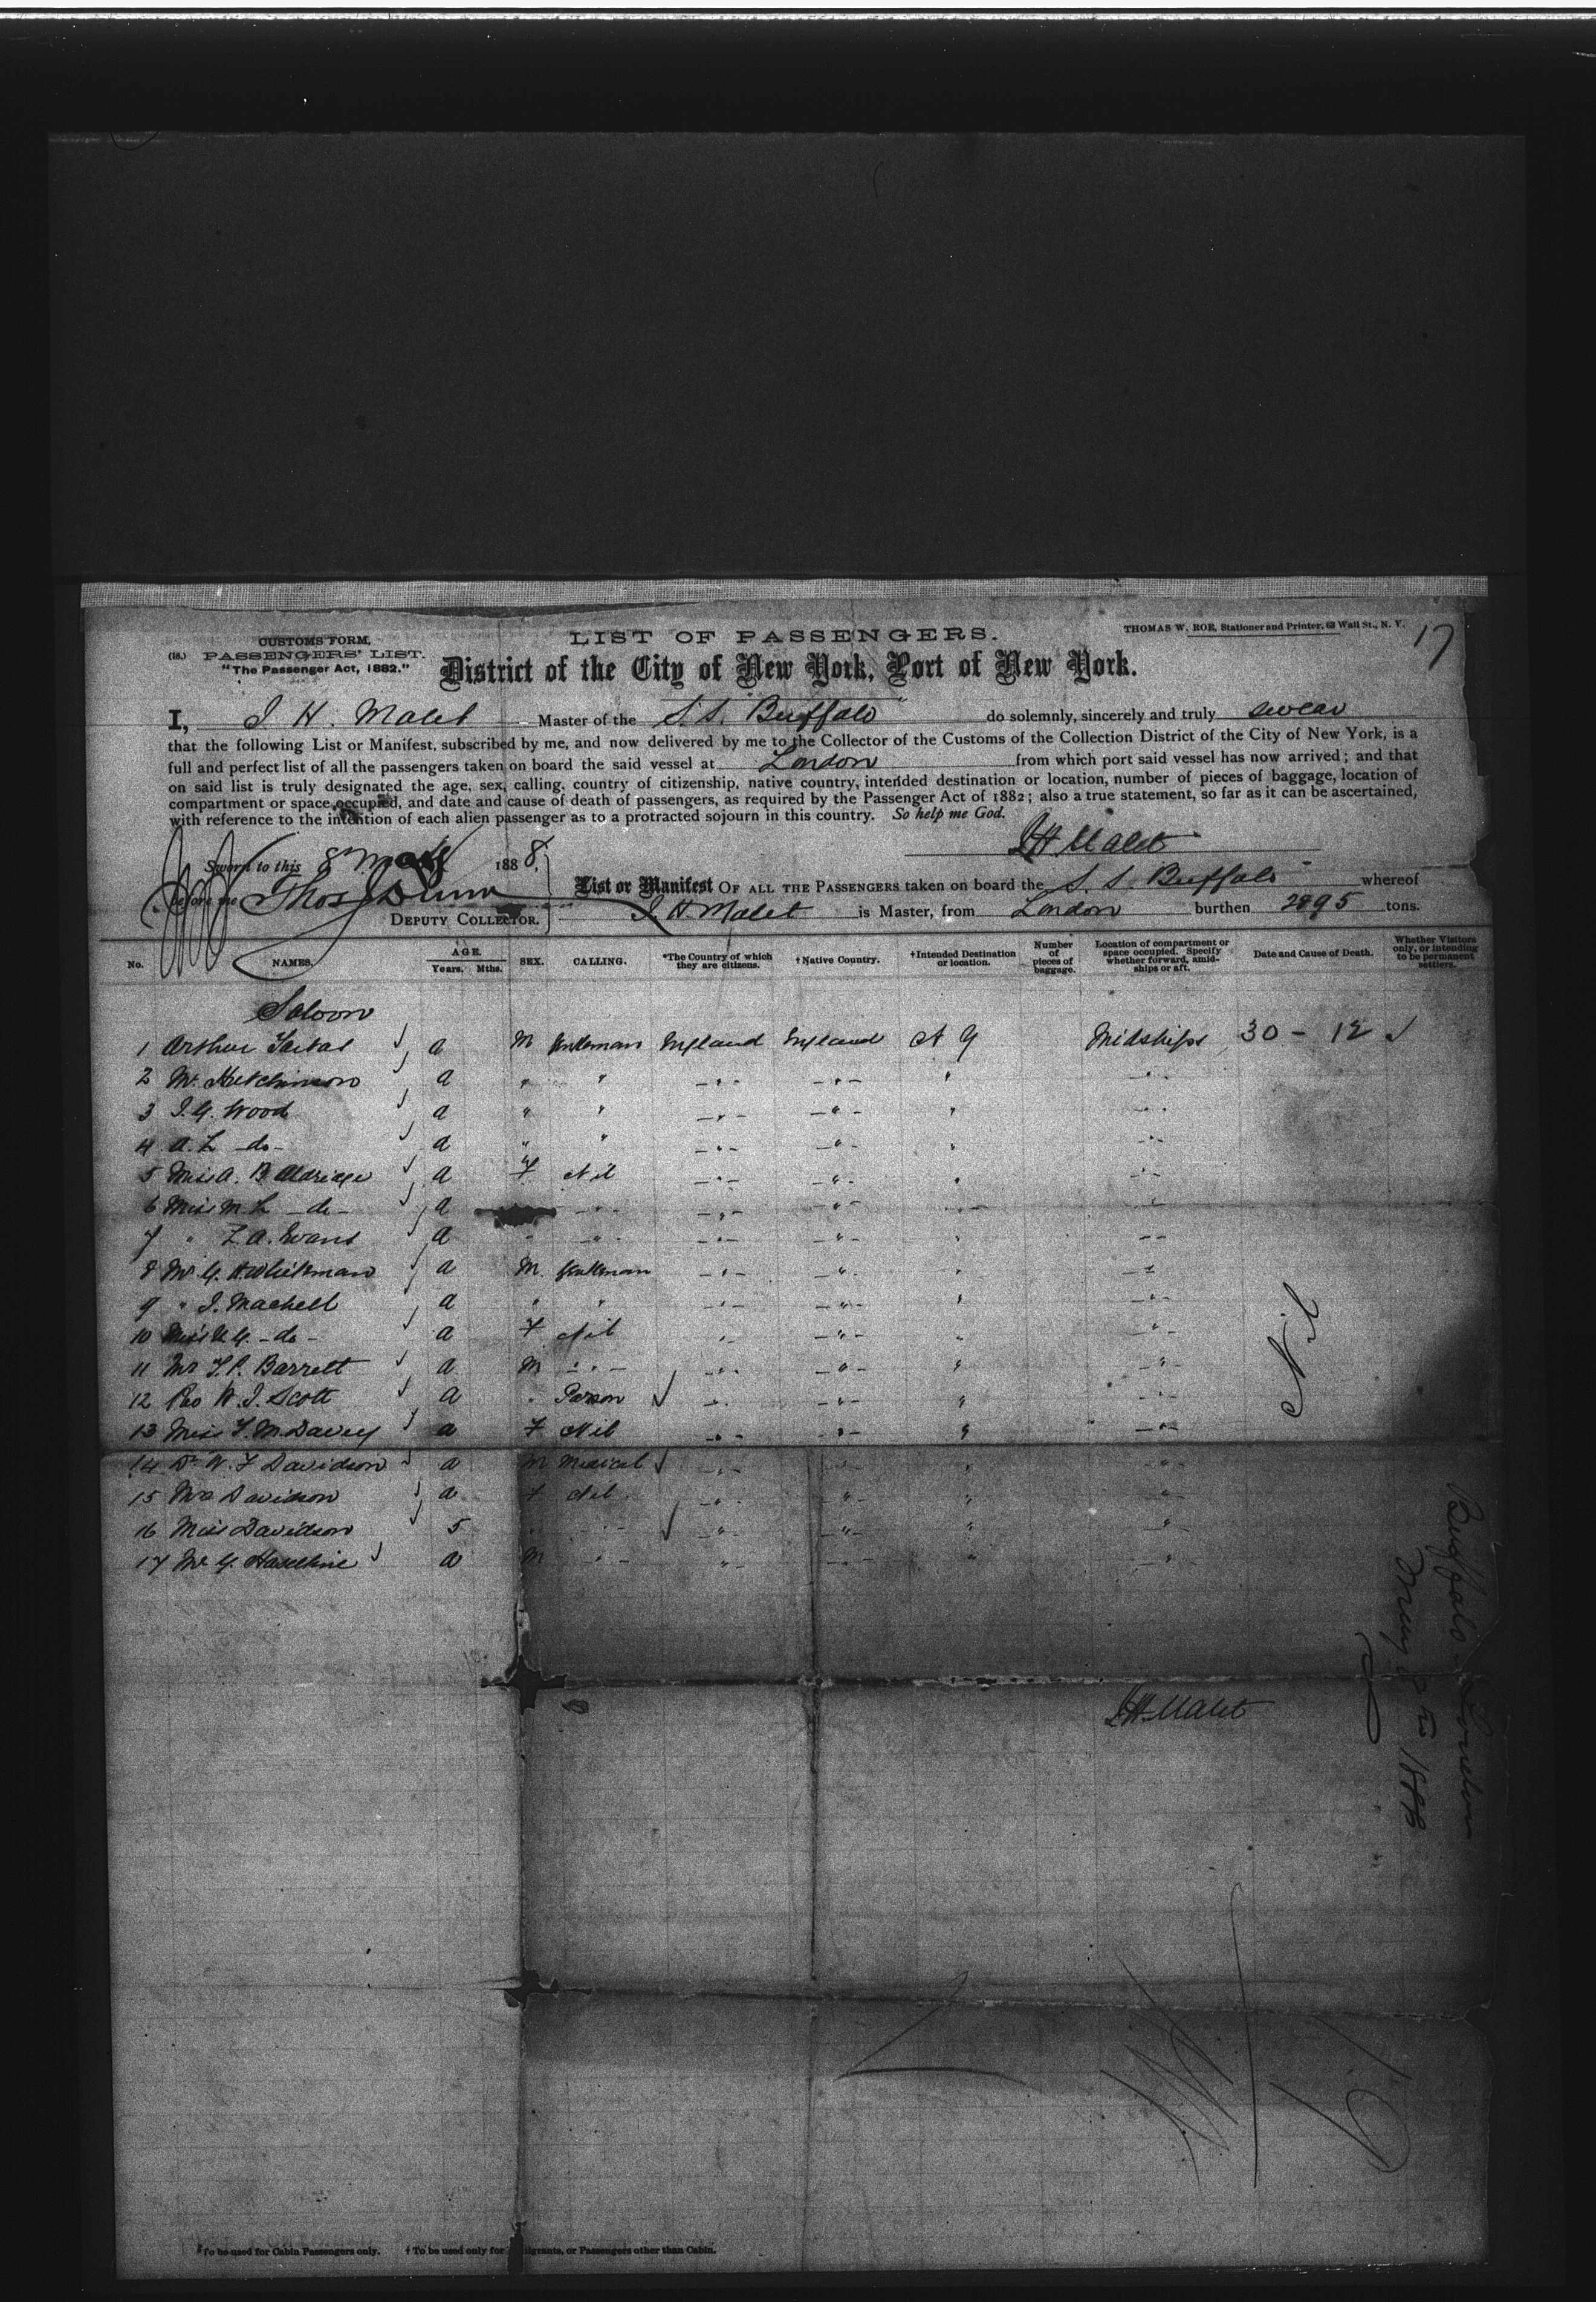 CUSTOMS FORM.
(18.) PASSENGERS' LIST.
"The Passenger Act, 1882."
LIST OF PASSENGERS.
THOMAS W. ROE, Stationer and Printer, Wall St., N. Y.
17
District of the City of New York, Port of New York.
I, J H. Malet Master of the S.S. Buffalo do solemnly, sincerely and truly swear
that the following List or Manifest, subscribed by me, and now delivered by me to the Collector of the Customs of the Collection District of the City of New York, is a
full and perfect list of all the passengers taken on board the said vessel at London from which port said vessel has now arrived; and that
on said list is truly designated the age, sex, calling, country of citizenship, native country, intended destination or location, number of pieces of baggage, location of
compartment or space occupied, and date and cause of death of passengers, as required by the Passenger Act of 1882; also a true statement, so far as it can be ascertained,
with reference to the intention of each alien passenger as to a protracted sojourn in this country. So help me God.
JH Malet
Sworn to this 8 1888,
before me Thos J Dunn
DEPUTY COLLECTOR.
List or Manifest OF ALL THE PASSENGERS taken on board the S. S. Buffalo whereof
J. H. Malet is Master, from London burthen 2895 tons.
No. NAMES. AGE. Years. Mths. SEX. CALLING. *The Country of which they are citizens. †Native Country. †Intended Destination or location. Number of pieces of baggage. Location of compartment or space occupied. Specify whether forward, amidships or aft. Date and Cause of Death. Whether Visitors only, or intending to be permanent settlers.
Saloon
1 Arthur a M Gentleman England England N Y Midships 30 - 12
2 Mr. Hutchinson a " " -"- -"- " "
3 J. G. Wood a " " -"- -"- " "
4 A. L -do- a " " -"- -"- " "
5 Miss A. B Aldridge a F Nil -"- -"- " "
6 Miss M. L -do- a -"- -"- -"- " "
7 " Z. A. Evans a " -"- -"- -"- " "
8 Mr G. H. Whiteman a M. Gentleman -"- -"- " "
9 " J. Machell a " " -"- -"- " "
10 Miss G. -do- a F Nil " -"- " "
11 Mr T. P. Barrett a M -"- -"- -"- " "
12 Rev W. J. Scott a " Parson " -"- " "
13 Miss F. M. Davey a F Nil -"- -"- " "
14 Dr W. F Davidson a M Medical -"- -"- " "
15 Mrs Davidson a F Nil -"- -"- " "
16 Miss Davidson 5 " -"- -"- -"- " "
17 Mr G. Haseltine a M " - " -"- " "
Nil
JH Malet
Buffalo London
May 8 th 1888
*To be used for Cabin Passengers only. †To be used only for migrants, or Passengers other than Cabin.